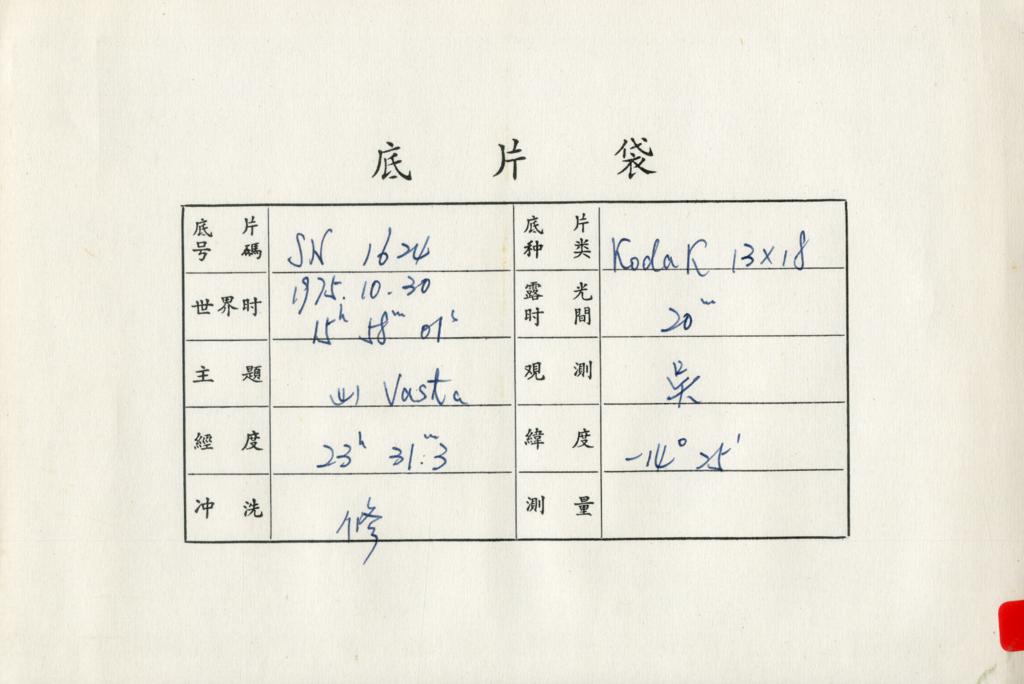 底片袋
底片号碼 SN 1624 底片种类 Kodak 13×18
世界时 1975.10.30
15ʰ 58ᵐ 01ˢ 露光时間 20ᵐ
主題 (4) Vasta 观測 吴
經度 23ʰ 31ᵐ.3 緯度 -14° 25′
冲洗 修 測量